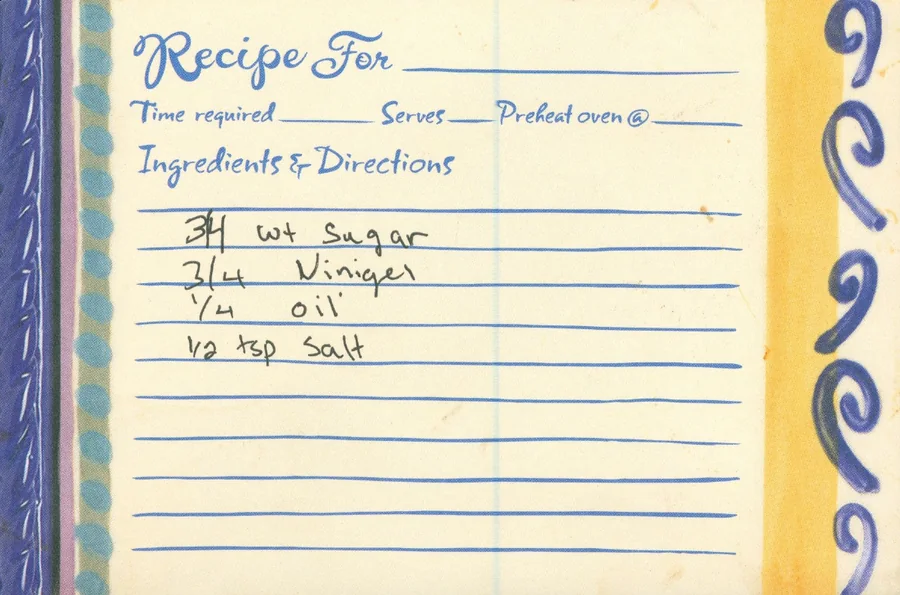 Recipe For
Time required Serves Preheat oven @
Ingredients & Directions
3/4 wt Sugar
3/4 Viniger
1/4 oil
1/2 tsp Salt